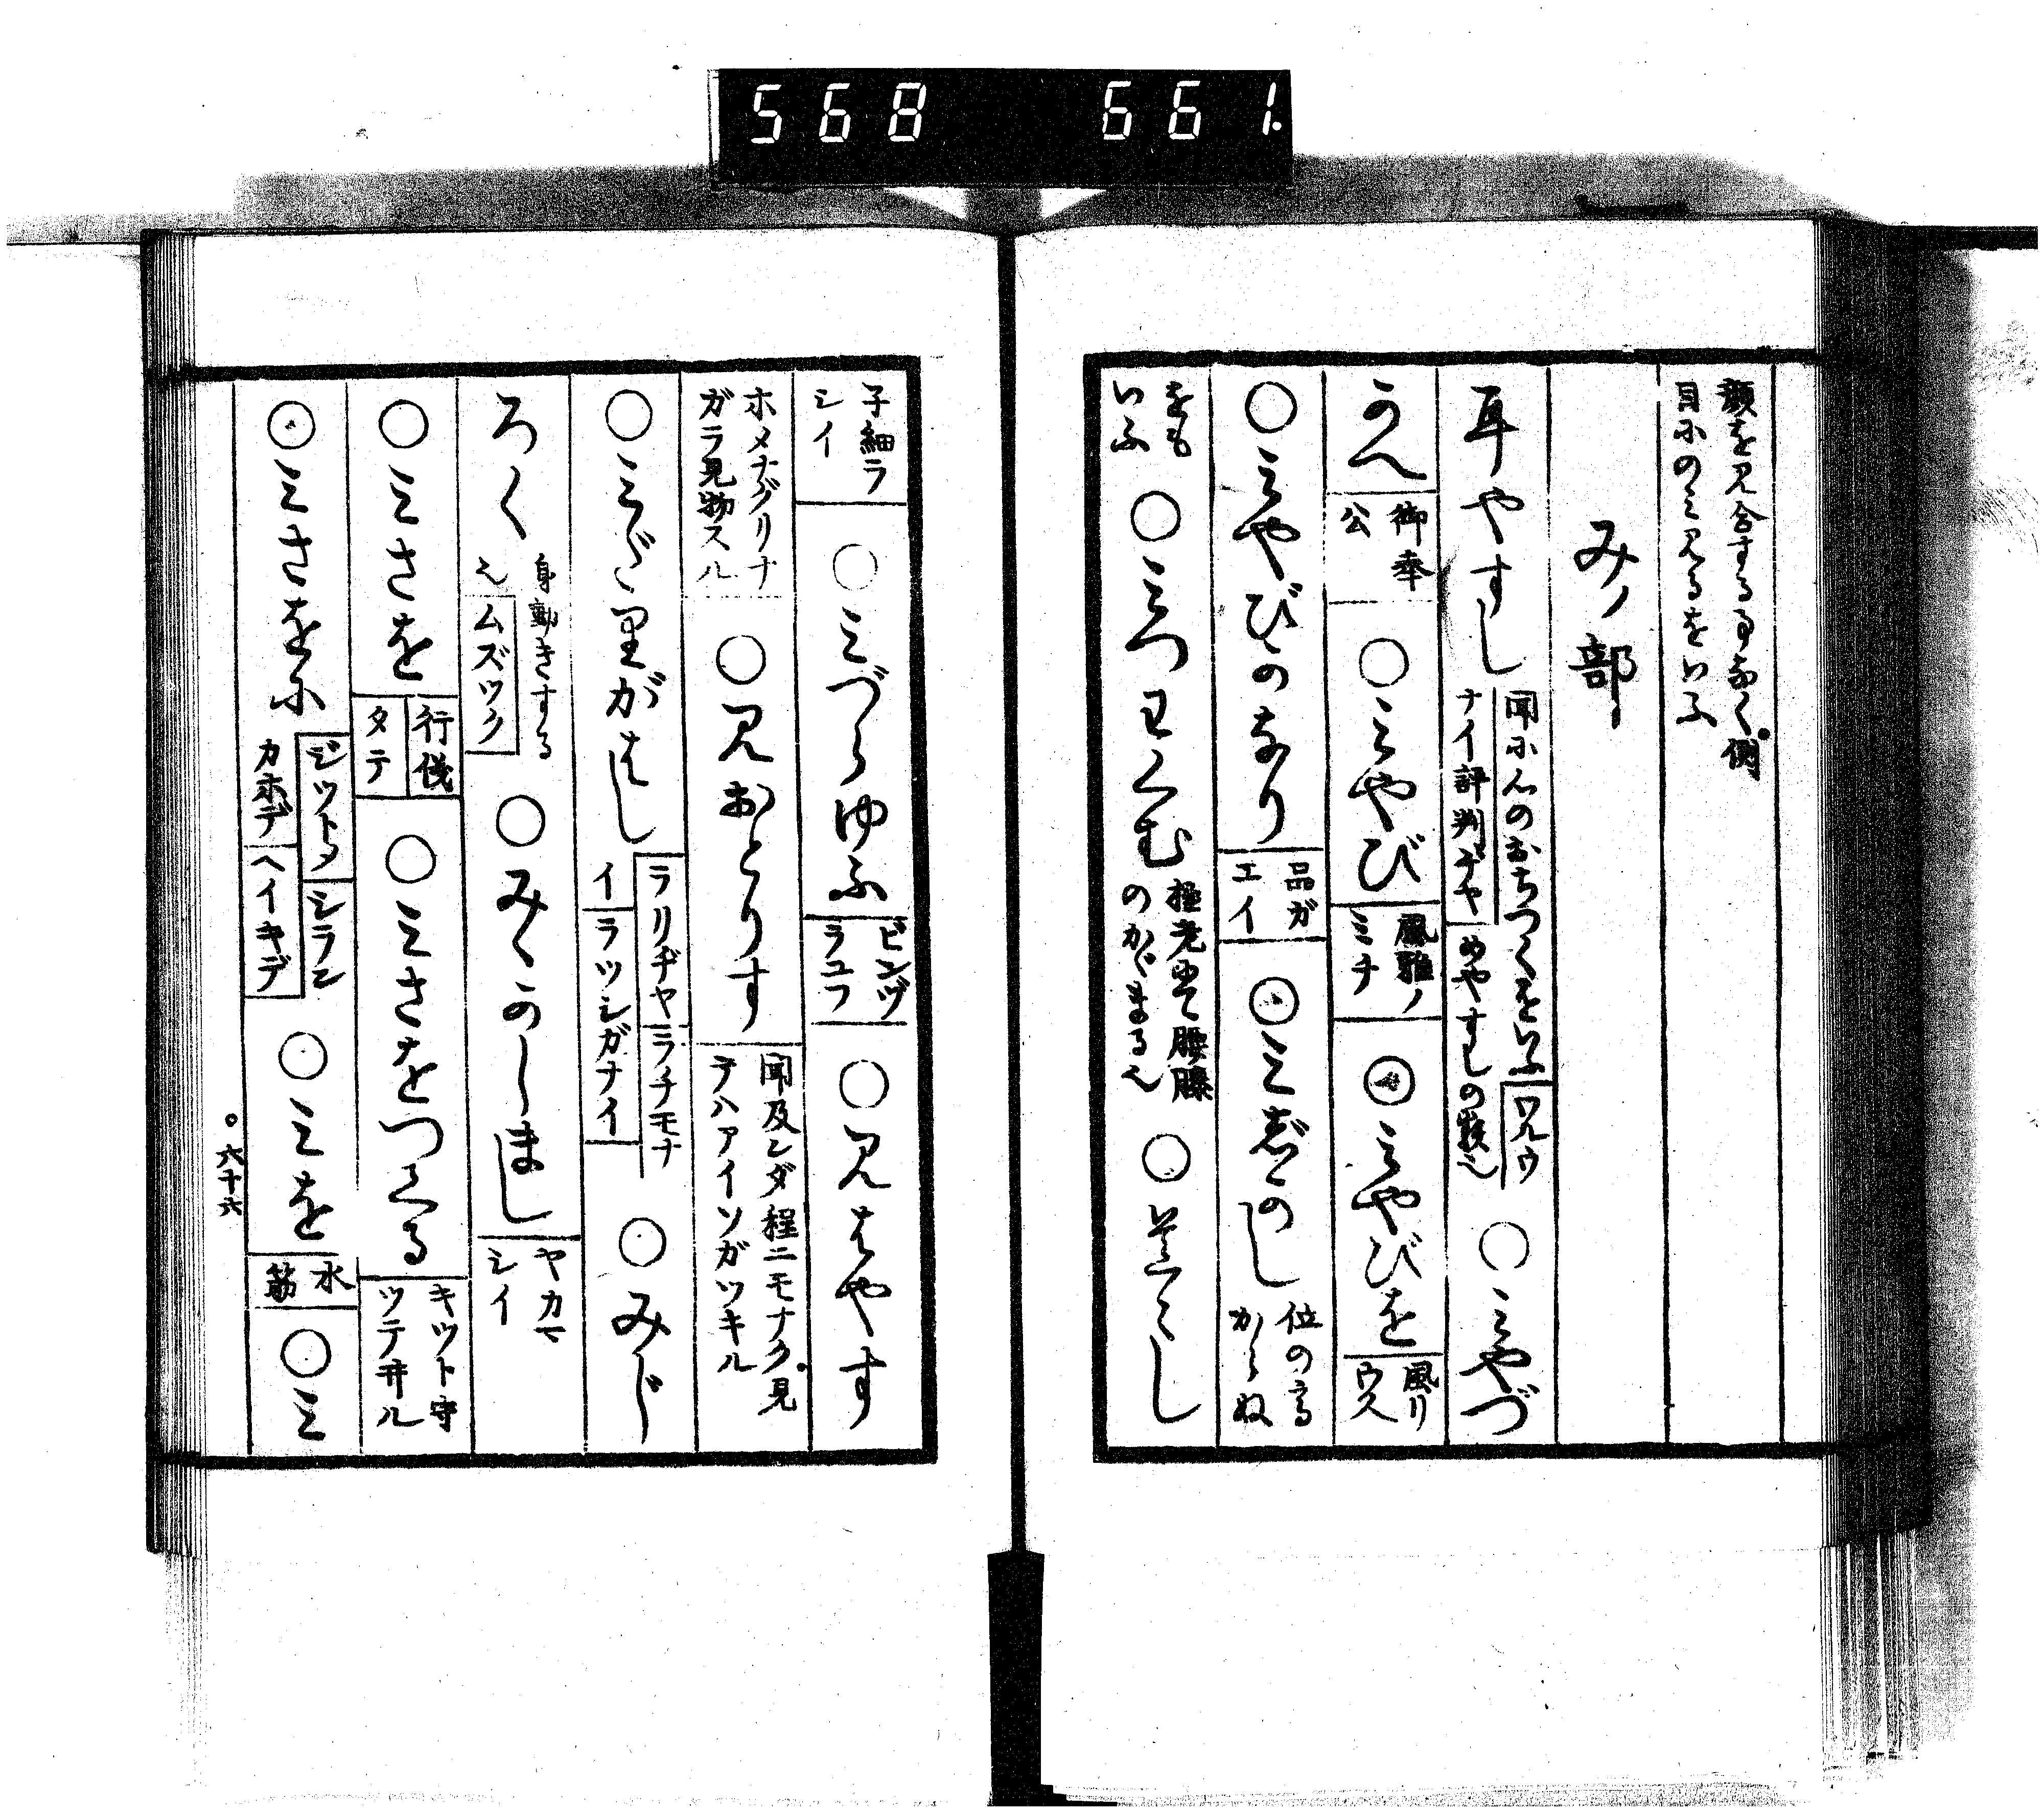 568 661.
顔を見合するる事なく。側
目にのミ見るをいふ
みノ部
耳やすし 聞に心のおちつくをいふ ワルウ
ナイ評判ヂヤ めやすしの類也 ○ミやづ
かへ 御奉公 ○ミやび 風雅ノミチ ⦿ミやびを 風リウ人
○ミやびのなり 品ガエイ ⦿ミじかし 位の高からぬ
をもいふ ○ミつわくむ 極老ゆて腰膝のかゞまる也 ○みゝし
子細ラシイ ○ミづらゆふ ビンヅラユフ ○見はやす
ホメナグリナガラ見物スル ○見おとりす 聞及ンダ程ニモナク。見テハアイソガツキル
○ミだ里がはし ラリヂヤ ラチモナイ ラツシガナイ ○みじ
ろく 身動きする也 ムズツク ○みゝかしまし ヤカマシイ
○ミさを 行儀 タテ ○ミさをつくる キツト守ツテ井ル
⦿ミさをに ジツトシタ シランカホデ ヘイキデ ○ミを 水筋 ○ミ
六十六